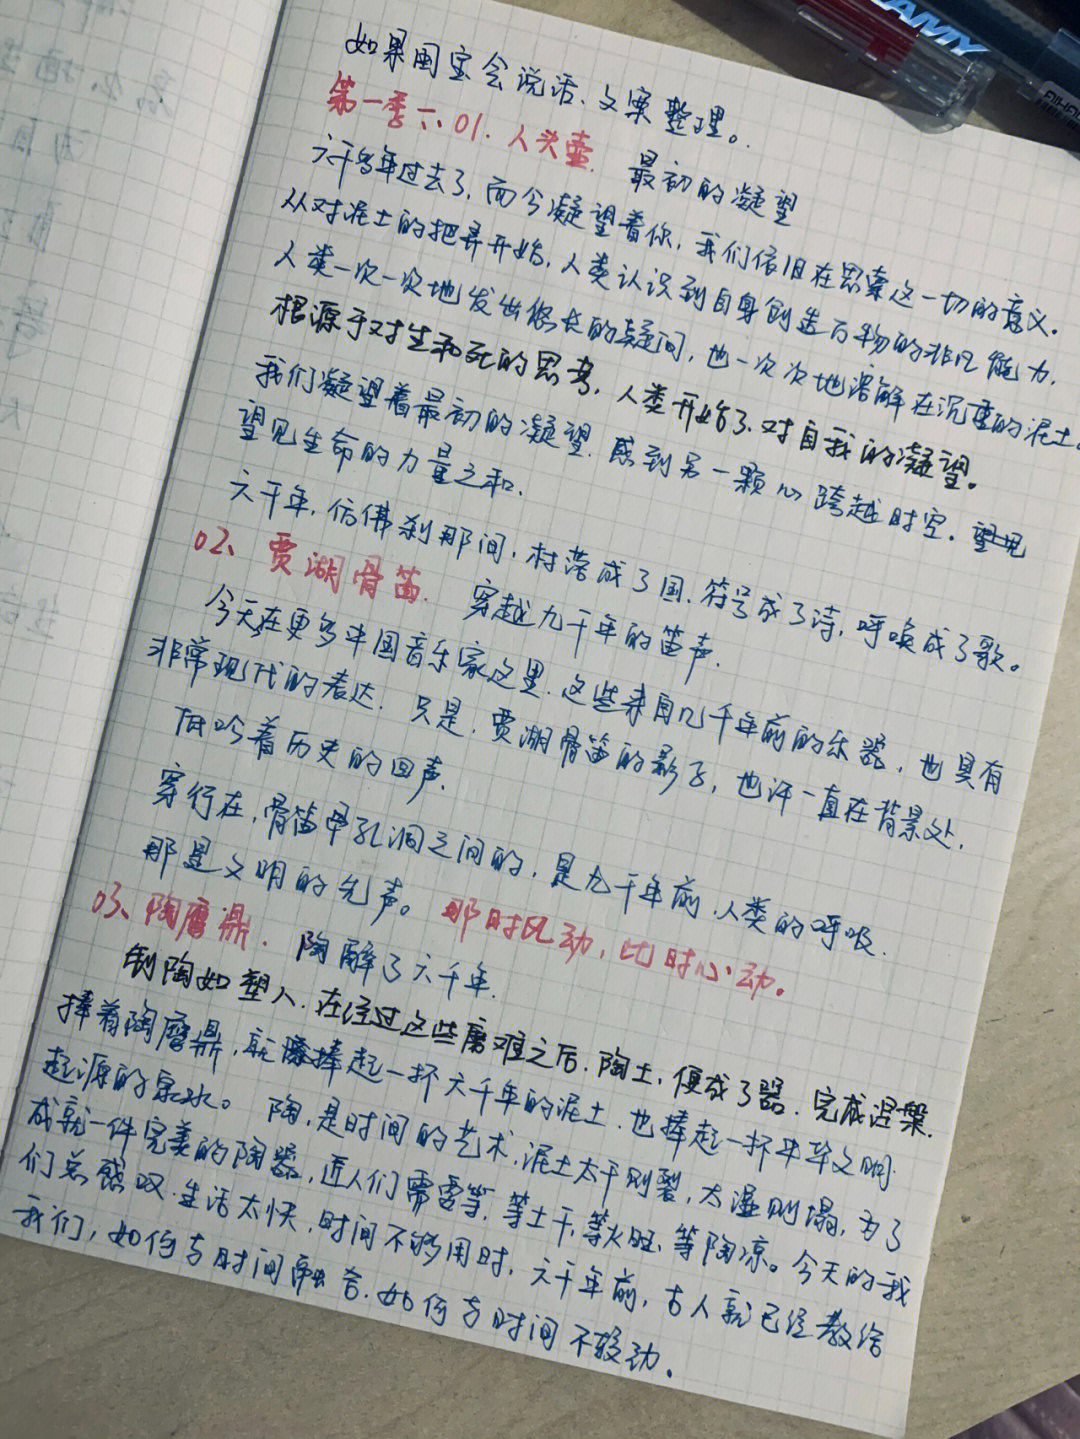 如果国宝会说话、文案整理。
第一季、01. 人头壶. 最初的凝望
六千多年过去了，而今凝望着你，我们依旧在思索这一切的意义。
从对泥土的把弄开始，人类认识到自身创造万物的非凡能力，
人类一次一次地发出悠长的疑问，也一次次地溶解在沉重的泥土。
根源于对生和死的思考，人类开始了对自我的凝望。
我们凝望着最初的凝望，感到另一颗心跨越时空，望见
望见生命的力量之和.
六千年，仿佛刹那间，村落成了国、符号成了诗，呼唤成了歌。
02、贾湖骨笛. 穿越九千年的笛声.
今天在更多中国音乐家这里，这些来自几千年前的乐器，也具有
非常现代的表达. 只是，贾湖骨笛的影子，也许一直在背景处，
低吟着历史的回声.
穿行在，骨笛骨孔洞之间的，是九千年前、人类的呼吸.
那是文明的先声。 那时风动，比时心动。
03、陶鹰鼎. 陶醉了六千年.
制陶如塑人，在经过这些磨难之后，陶土，便成了器、完成涅槃.
捧着陶鹰鼎，就捧起一抔六千年的泥土，也捧起一抔中华文明
起源的泉水。 陶，是时间的艺术，泥土太干则裂，太湿则塌，为了
成就一件完美的陶器，匠人们需要等，等土干，等火旺，等陶凉。今天的我
们总感叹，生活太快，时间不够用时，六千年前，古人就已经教给
我们，如何与时间融合，如何与时间不较劲。
LAMY